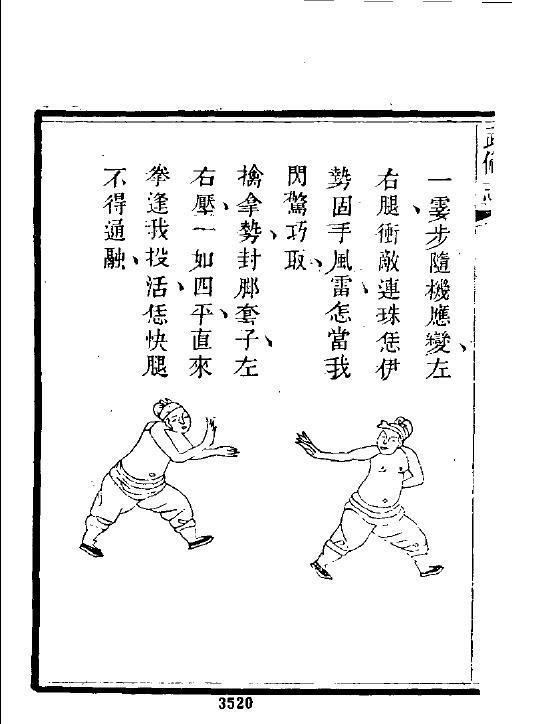 武備志
一霎步隨機應變、左
右腿、衝敵連珠恁伊
勢固手風雷、怎當我
閃驚巧取、
擒拿勢、封脚套子、左
右壓、一如四平、直來
拳逢我投活、恁快腿
不得通融、
3520